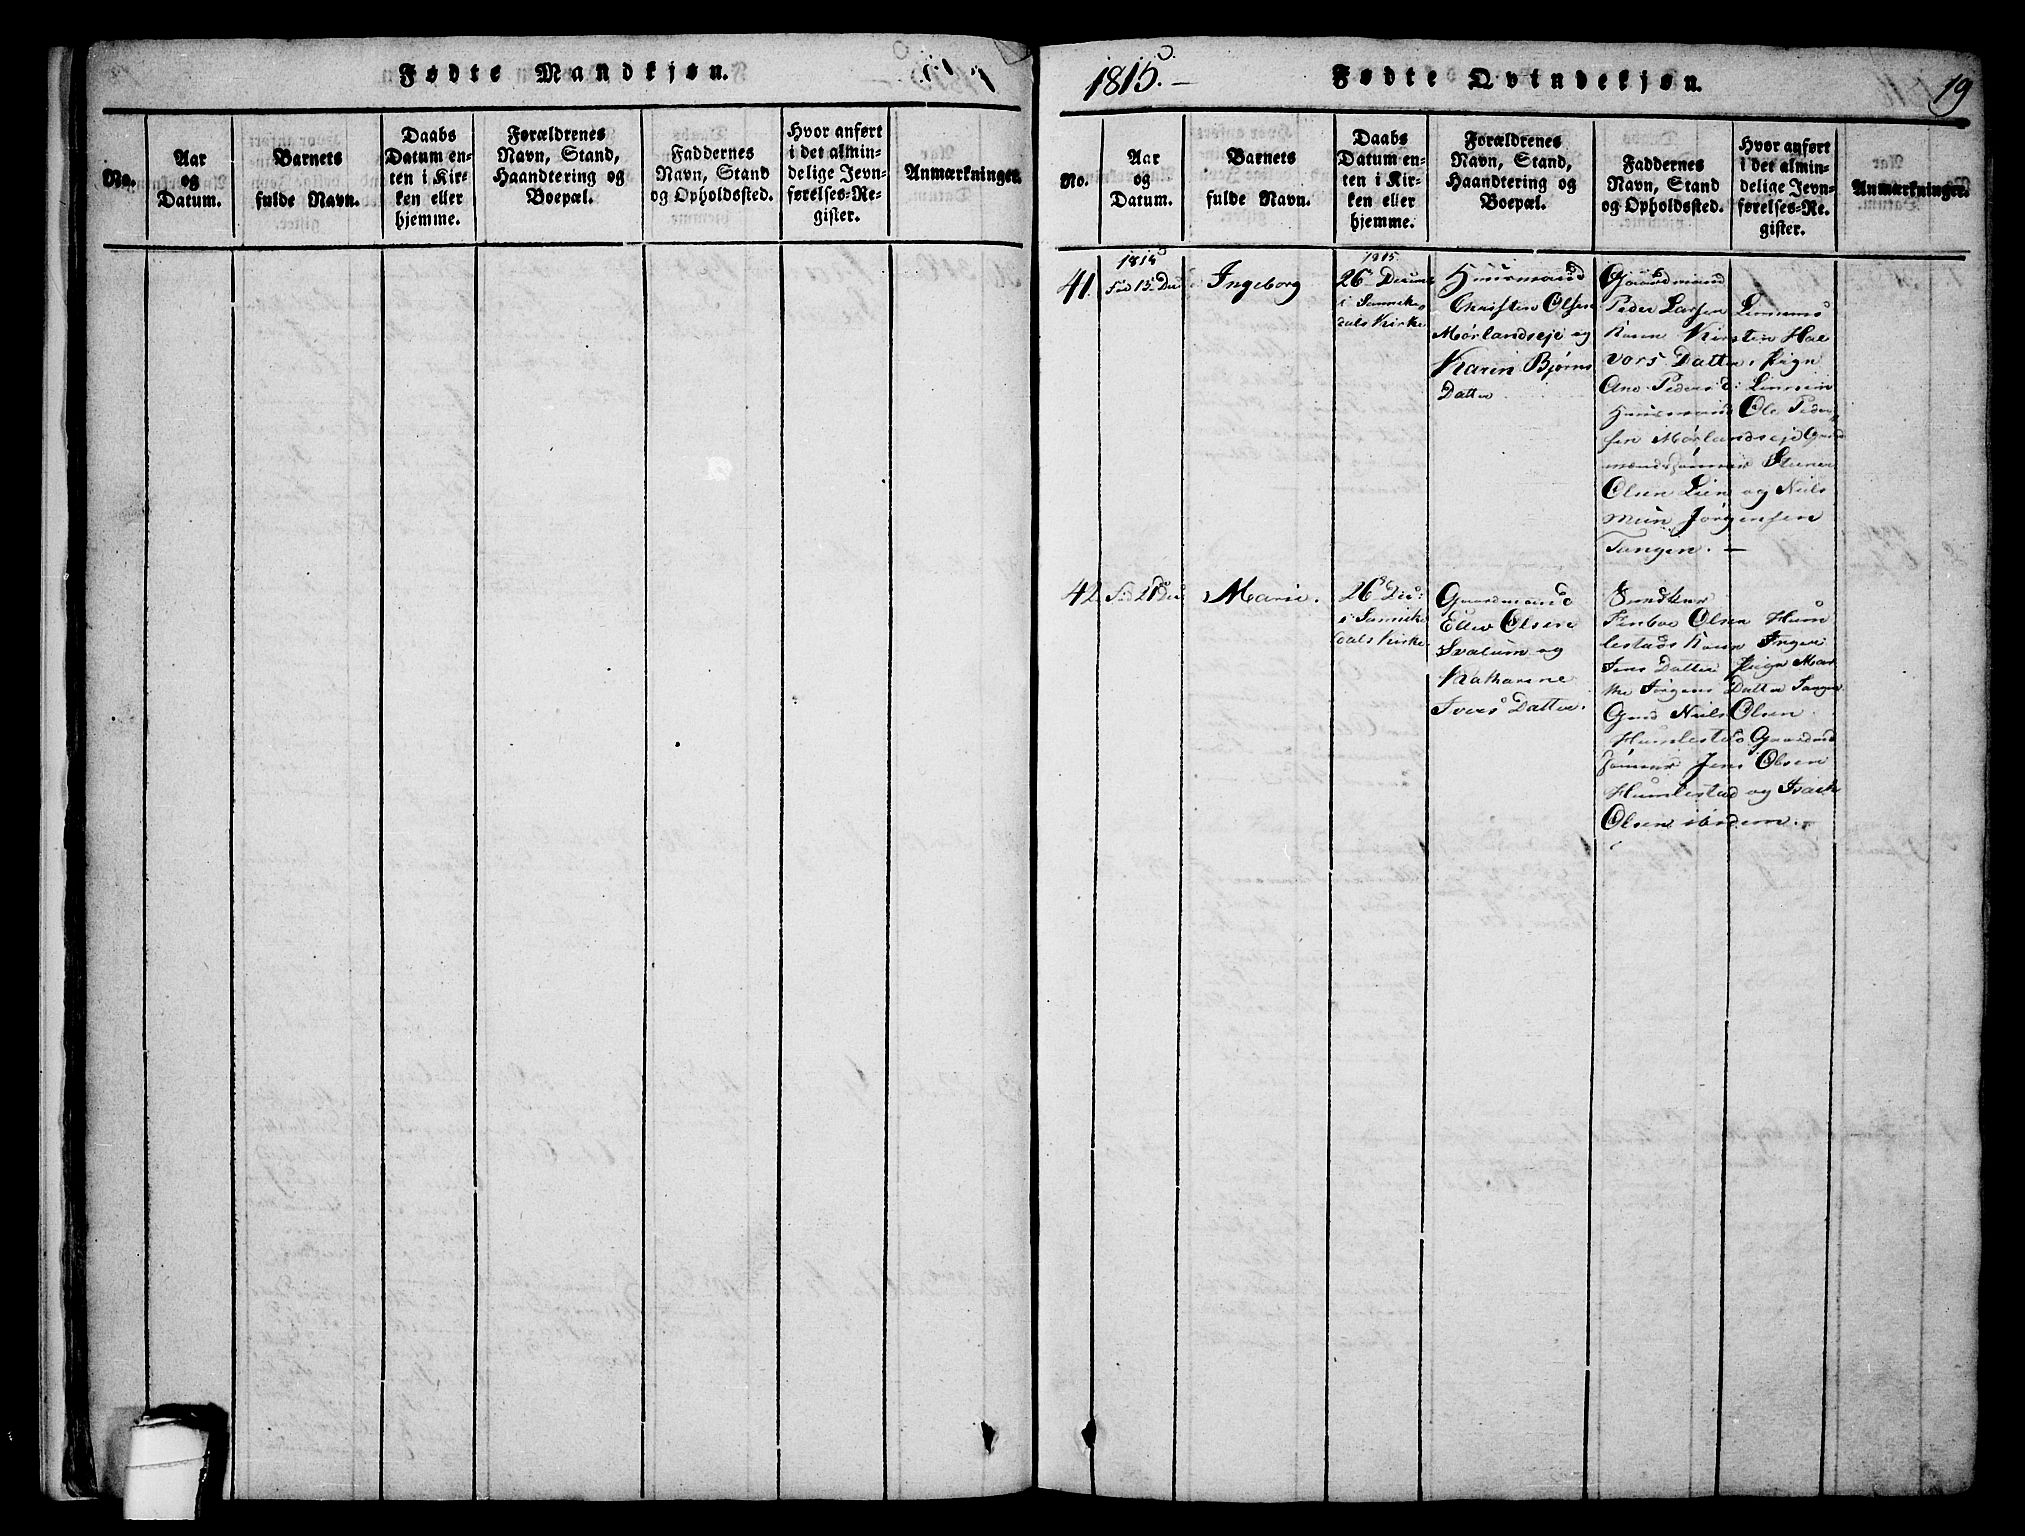 Fødte Mandkjøn.
No.
Aar
og
Datum.
Barnets
fulde Navn.
Daabs
Datum en-
ten i Kir-
ken eller
hjemme.
Forældrenes
Navn, Stand,
Haandtering og
Boepæl.
Faddernes
Navn, Stand
og Opholdssted.
Hvor anført
i det almin-
delige Jevn-
førelses-Re-
gister.
Anmærkninger.
1815. —
Fødte Qvindekjøn.
19
No.
Aar
og
Datum.
Barnets
fulde Navn.
Daabs
Datum en-
ten i Kir-
ken eller
hjemme.
Forældrenes
Navn, Stand,
Haandtering og
Boepæl.
Faddernes
Navn, Stand
og Opholdssted.
Hvor anført
i det almin-
delige Jevn-
førelses-Re-
gister.
Anmærkninger.
41.
1815
15
Ingeborg
1815.
26
i Sannike-
dals Kirke
Huusmand
Christen Olsen
Mørlandseje og
Karen Bjørns
Datter
Gaardmand
Peder Larsen
Kone Kirsten Hal
vors Datter, Pige
Ane Peders D:
Huusmand Ole Peder
sen Mørlandseje
Olsen Lien og Niels
Jørgensen
Tangen. —
42.
21
Marie.
26
i Sannike
dals Kirke
Gaardmand
Ellev Olsen
Svalum og
Katharine
Ivers Datter.
Olsen Hum
lestads Kone Inger
Jens Datter Pige Mar
the Jørgens Datter Tangen
Niels Olsen
Humlestad
Jens Olsen
Humlestad og Isach
Olsen ibidem.